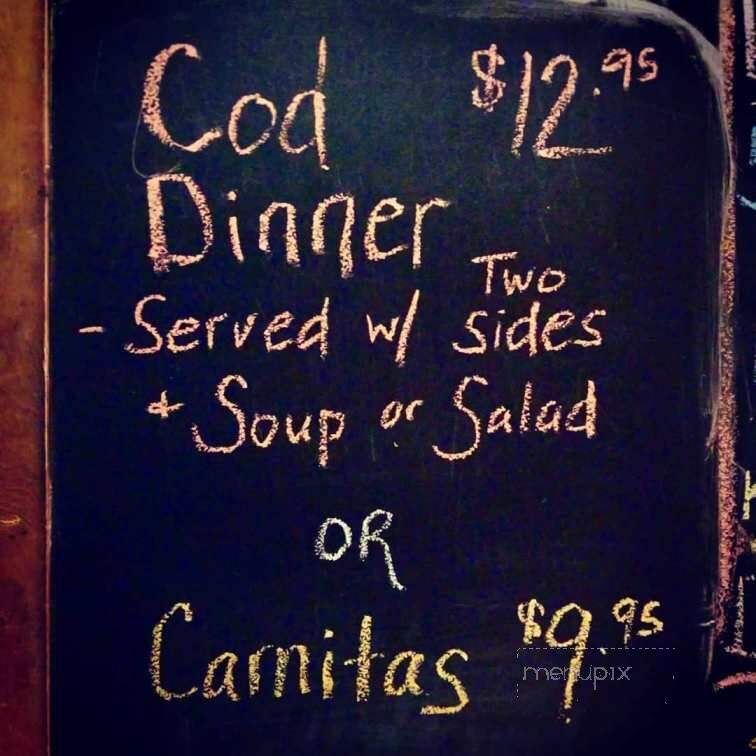 Cod $12.95
Dinner
Two
- Served w/ sides
+ Soup or Salad
OR
Carnitas $9.95
menupix